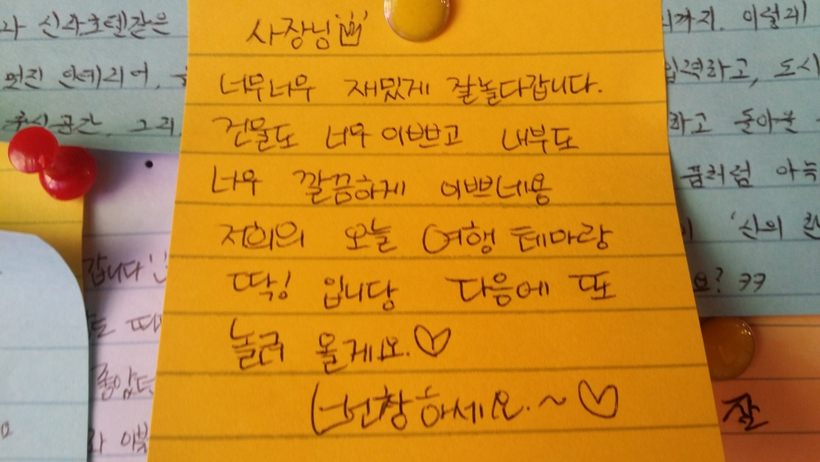 신라호텔같은
멋진 인테리어,
휴식공간, 그리
갑니다
사장님
너무너무 재밌게 잘놀다갑니다.
건물도 너무 이쁘고 내부도
너무 깔끔하게 이쁘네용
저희의 오늘 여행 테마랑
딱! 입니당 다음에 또
놀러 올게요.♡
번창하세요.~♡
까지.
입력하고, 도시
하고 돌아올
꿈처럼 아늑
'신의 한
요? ㅋㅋ
잘